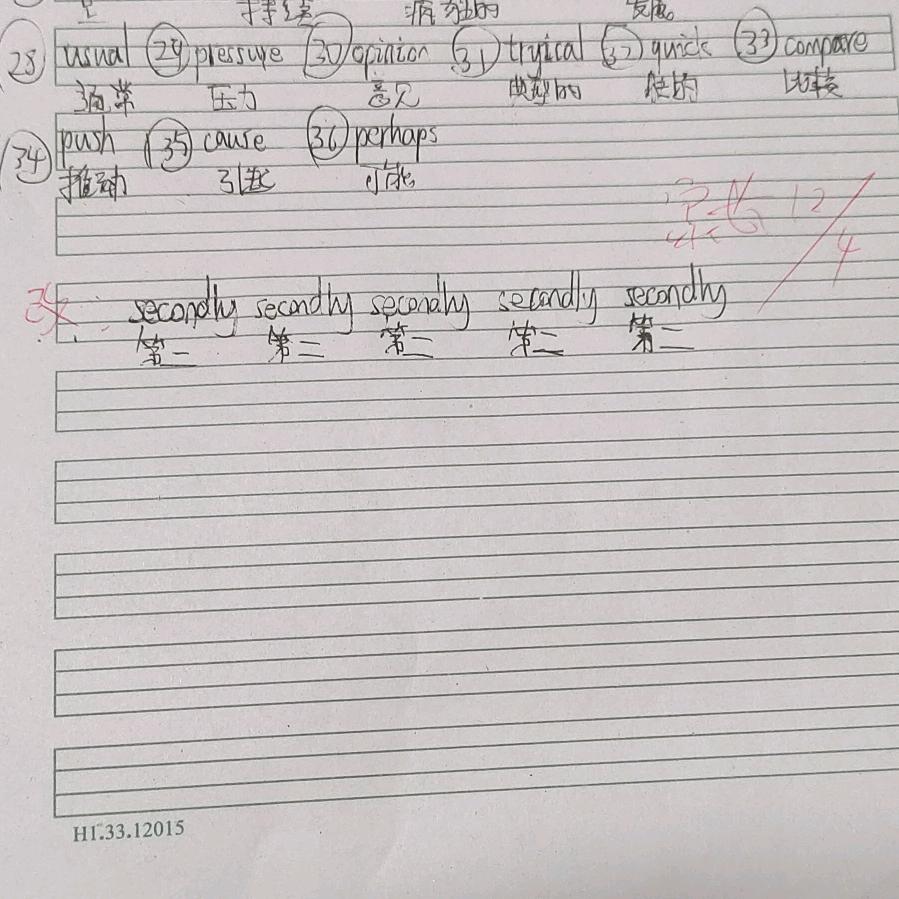 28 usual 29 pressure 30 opinion 31 tryical 32 quick 33 compare
通常 压力 意见 典型的 快的 比较
34 push 35 cause 36 perhaps
推动 引起 可能
12/4
改
secondly secondly secondly secondly secondly
第二 第二 第二 第二 第二
H1.33.12015